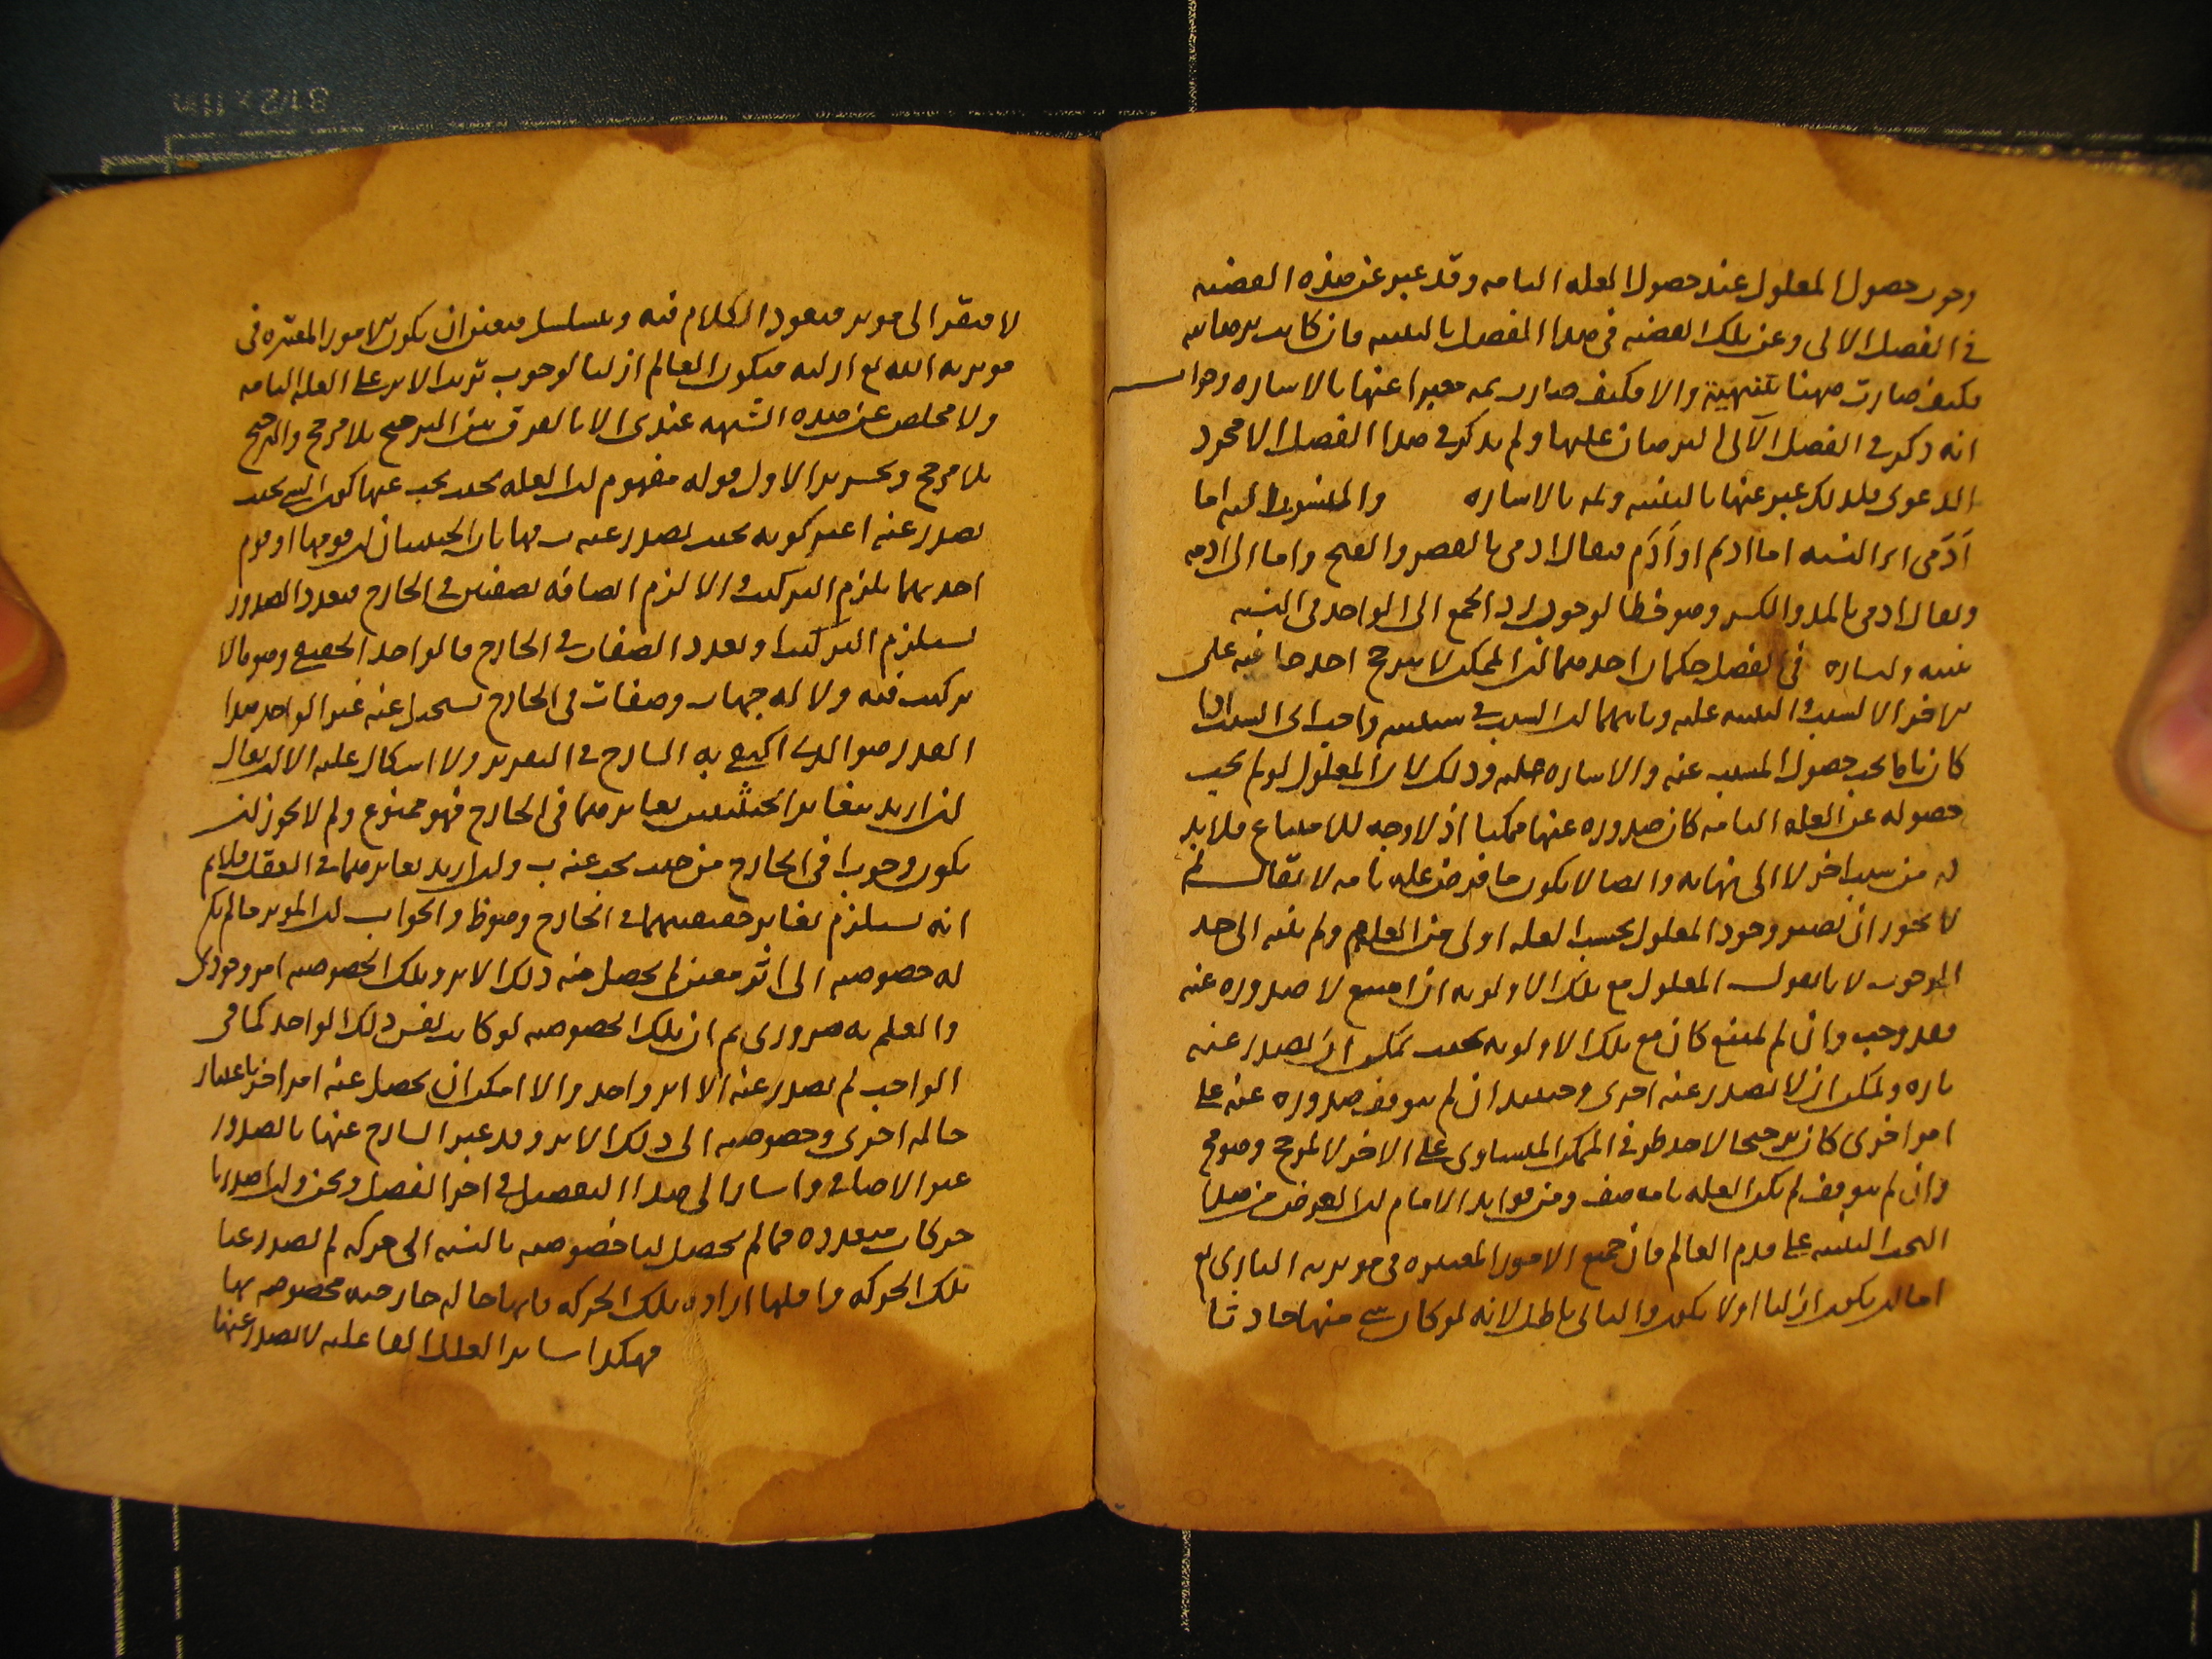 وجوب حصول المعلول عند حصول العله التامه وقد عبر عن هذه القضيه
في الفصل الاتى وعن تلك القضيه في هذا الفصل بالتنبيه فان كانت برهانيه
فكيف صارت ههنا تنبيهية والا فكيف صارت ثمه معبرا عنها بالاشاره وجوابه
انه ذكر في الفصل الآتى البرهان عليها ولم يذكر في هذا الفصل الا مجرد
الدعوى فلذلك عبر عنها بالتنبيه وثمه بالاشاره والمنسوب اليه اما
آدَمى اذ النسبه اما ادم او آدَم فيقال ادمى بالقصر والفتح واما الى ادمه
ويقال ادمى بالمد والكسر وهو خطا لوجوب رد الجمع الى الواحد في النسبه
تنبيه واشاره في الفصل حكمان احدهما ان الممكن لا يترجح احد جانبيه على
الاخر الا لسبب والتنبيه عليه وثانيهما ان السبب في سببيته واجب اى السبب اذا
كان تاما يجب حصول المسبب عنه والاشاره اليه وذلك لان المعلول لو لم يجب
حصوله عن العله التامه كان صدوره عنها ممكنا اذ لا وجه للامتناع فلا بد
له من سبب اخر لا الى نهايه وايضا لا يكون ما فرض عله تامه لا يقال لم
لا يجوز ان يصير وجود المعلول بحسب العله اولى من العدم ولم ينته الى حد
الوجوب لانا نقول المعلول مع تلك الاولويه ان امتنع لا صدوره عنه
فقد وجب وان لم يمتنع كان مع تلك الاولويه بحيث يمكن ان يصدر عنه
تاره ويمكن ان لا يصدر عنه اخرى وحينئذ ان لم يتوقف صدوره عنه على
امر اخر كان ترجيحا لاحد طرفي الممكن المتساوى على الاخر لا لمرجح وهو مح
وان توقف لم يكن العله تامه هف ومن فوايد الامام ان الغرض من هذا
البحث التنبيه على قدم العالم فان جميع الامور المعتبره في موثريه البارى تع
اما ان يكون ازليا اولا يكون والتالى باطل لانه لو كان شى منها حادثا
لافتقر الى موثر فيعود الكلام فيه ويتسلسل فتعين ان يكون الامور المعتبره في
موثريه الله تع ازليه فيكون العالم ازليا لوجوب ترتب الاثر على العله التامه
ولا مخلص عن هذه الشبهه عندى الا بالفرق بين الترجيح بلا مرجح والترجح
بلا مرجح وتحرير الاول قوله مفهوم ان العله بحيث يجب عنها كون الشى بحيث
يصدر عنه اعتبر كونه بحيث يصدر عنه ب فهاتان الحيثيتان ان قومها او قوم
احديهما يلزم التركيب والا لزم اتصافه بصفتين في الخارج فتعدد الصدور
يستلزم التركيب او تعدد الصفات في الخارج فالواحد الحقيقى وهو ما لا
تركيب فيه ولا له جهات وصفات في الخارج يستحيل عنه غير الواحد هذا
القدر هو الذى اكتفى به الشارح في التقرير ولا اشكال عليه الا ان يقال
ان اريد بتغاير الحيثيتين تغايرهما في الخارج فهو ممنوع ولم لا يجوز ان
يكون وجوب ا في الخارج من حيث يجب عنه ب وان اريد تغايرهما في العقل فلا نم
انه يستلزم تغاير حقيقتيهما في الخارج وهو ظ والجواب ان الموثر ما لم يكن
له خصوصيه الى اثر معين لم يحصل منه ذلك الاثر وتلك الخصوصيه امر وجودى
والعلم به ضرورى ثم ان تلك الخصوصيه لو كانت نفس ذلك الواحد كما في
الواجب لم يصدر عنه الا اثر واحد والا امكن ان يحصل عنه امر اخر باعتبار
حاله اخرى وخصوصيه الى ذلك الاثر وقد عبر الشارح عنها بالصدور
غير الاضافى واشار الى هذا التفصيل في اخر الفصل ونحن وان اصدرنا
حركات متعدده فما لم يحصل لنا خصوصيه بالنسبه الى حركه لم تصدر عنا
تلك الحركه واقلها اراده تلك الحركه فانها حاله خارجيه مخصوصه بها
فهكذا ساير العلل الفاعليه لا يصدر عنها